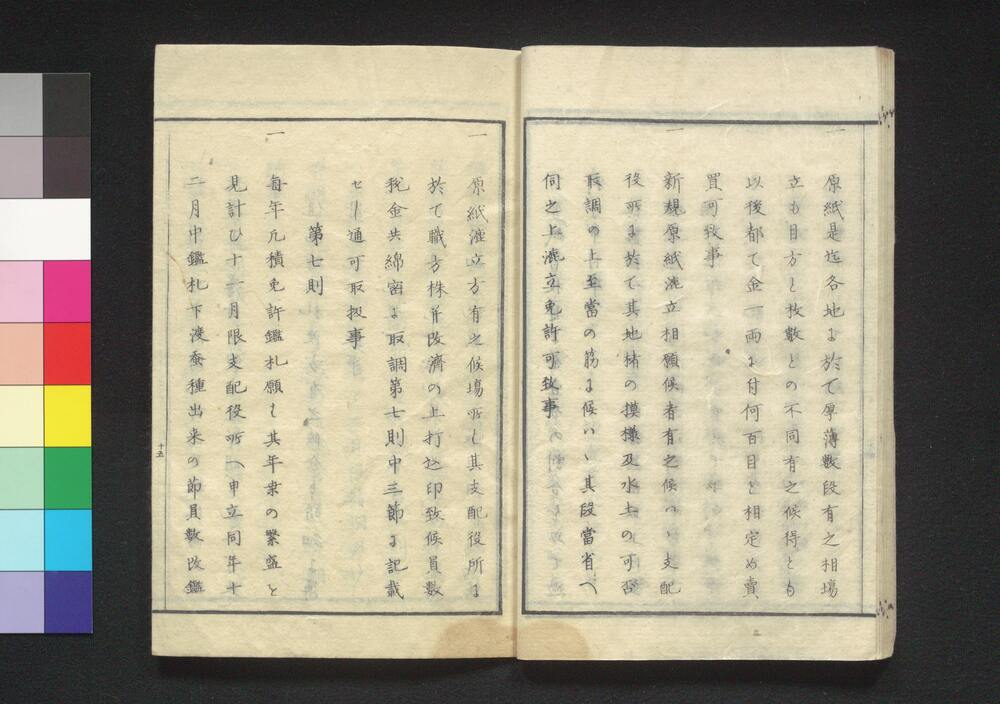 一
原紙是迄各地ニ於て厚薄數段有之相塲
立も目方と枚數との不同有之候得とも
以後都て金一両ニ付何百目と相定め賣
買可致事
一
新規原紙漉立相願候者有之候ハヽ支配
役所ニ於て其地柄の模様及水土の可否
取調の上至當の筋ニ候ハヽ其段當省へ
伺之上漉立免許可致事
一
原紙漉立方有之候塲所も其支配役所ニ
於て職方株并改濟の上打込印致候員數
税金共綿密ニ取調第七則中三節ニ記載
セし通可取扱事
第七則
一
毎年凡積免許鑑札願も其年柔の繁盛を
見計ひ十一月限支配役所へ申立同年十
二月中鑑札下渡蚕種出来の節員數改鑑
十五